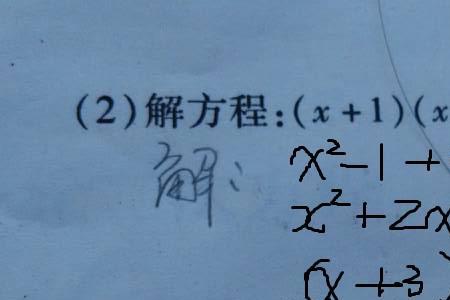 (2)解方程:(x+1)(x
解:
x²-1+
x²+2x
(x+3)